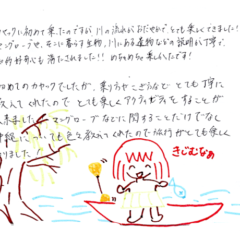 カヤックに初めて乗ったのですが川の流れがおだやかでとても楽しくできました!
マングローブや、そこに暮らす生物、川にある産物などの説明が丁寧で、
好奇心も満たされました!! めちゃめちゃ楽しかったです!
初めてのカヤックでしたが、乗り方やこぎ方など とても丁寧に
教えてくれたので とても楽しくアクティビティをすることが
出来ました! マングローブなどに関することだけでなく
沖縄についても色々教えてくれたので だけからとても楽しく
なりました!!
きじむなぁ